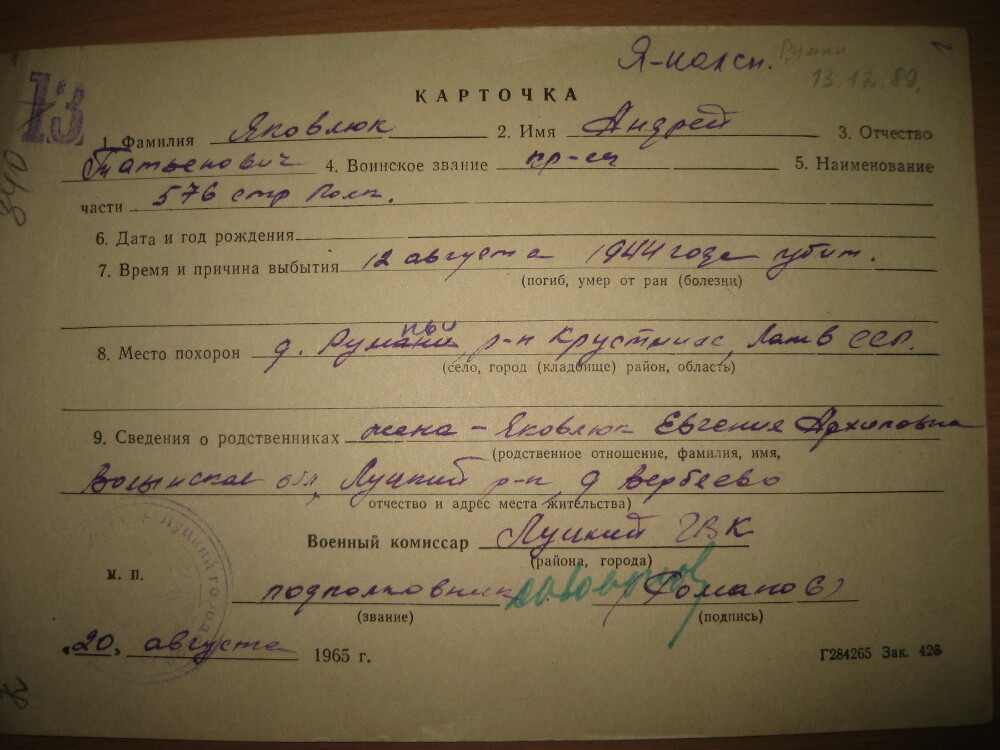 Я-налсп. Румпи 2
13.12.89.
13
КАРТОЧКА
1. Фамилия Яковлюк 2. Имя Андрей 3. Отчество
Татьенович 4. Воинское звание кр-ец 5. Наименование
части 576 стр Полк.
6. Дата и год рождения
7. Время и причина выбытия 12 августа 1944 года убит.
(погиб, умер от ран (болезни)
8. Место похорон д. Румпы, р-н Крустпилс, Латв ССР.
(село, город (кладбище) район, область)
9. Сведения о родственниках жена - Яковлюк Евгения Архиповна
(родственное отношение, фамилия, имя,
Волынская обл, Луцкий р-н, д Вербаево
отчество и адрес места жительства)
Военный комиссар Луцкий ГВК
(района, города)
М. П. подполковник (Романов)
(звание) (подпись)
«20» августа 1965 г. Г284265 Зак. 426